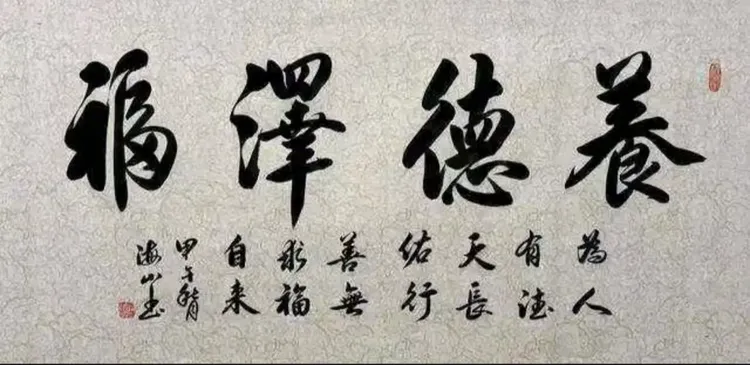 養德澤福
為人
有德
天長
佑行
善無
求福
自来
甲午
海山